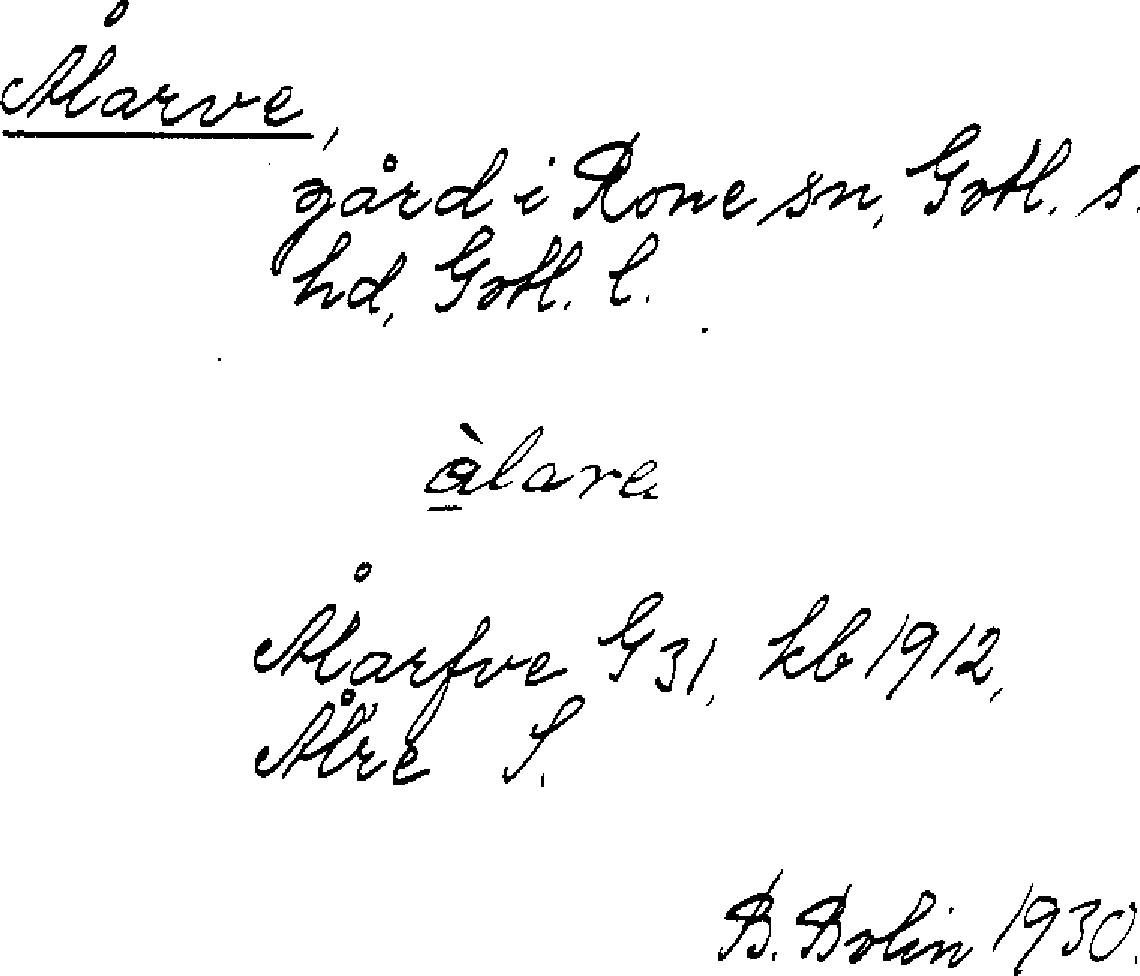 Ålarve,
gård i Rone sn, Gotl. s.
hd, Gotl. l.
àlare
Ålarfve G 31, kb 1912,
S.
B. Bolin 1930.